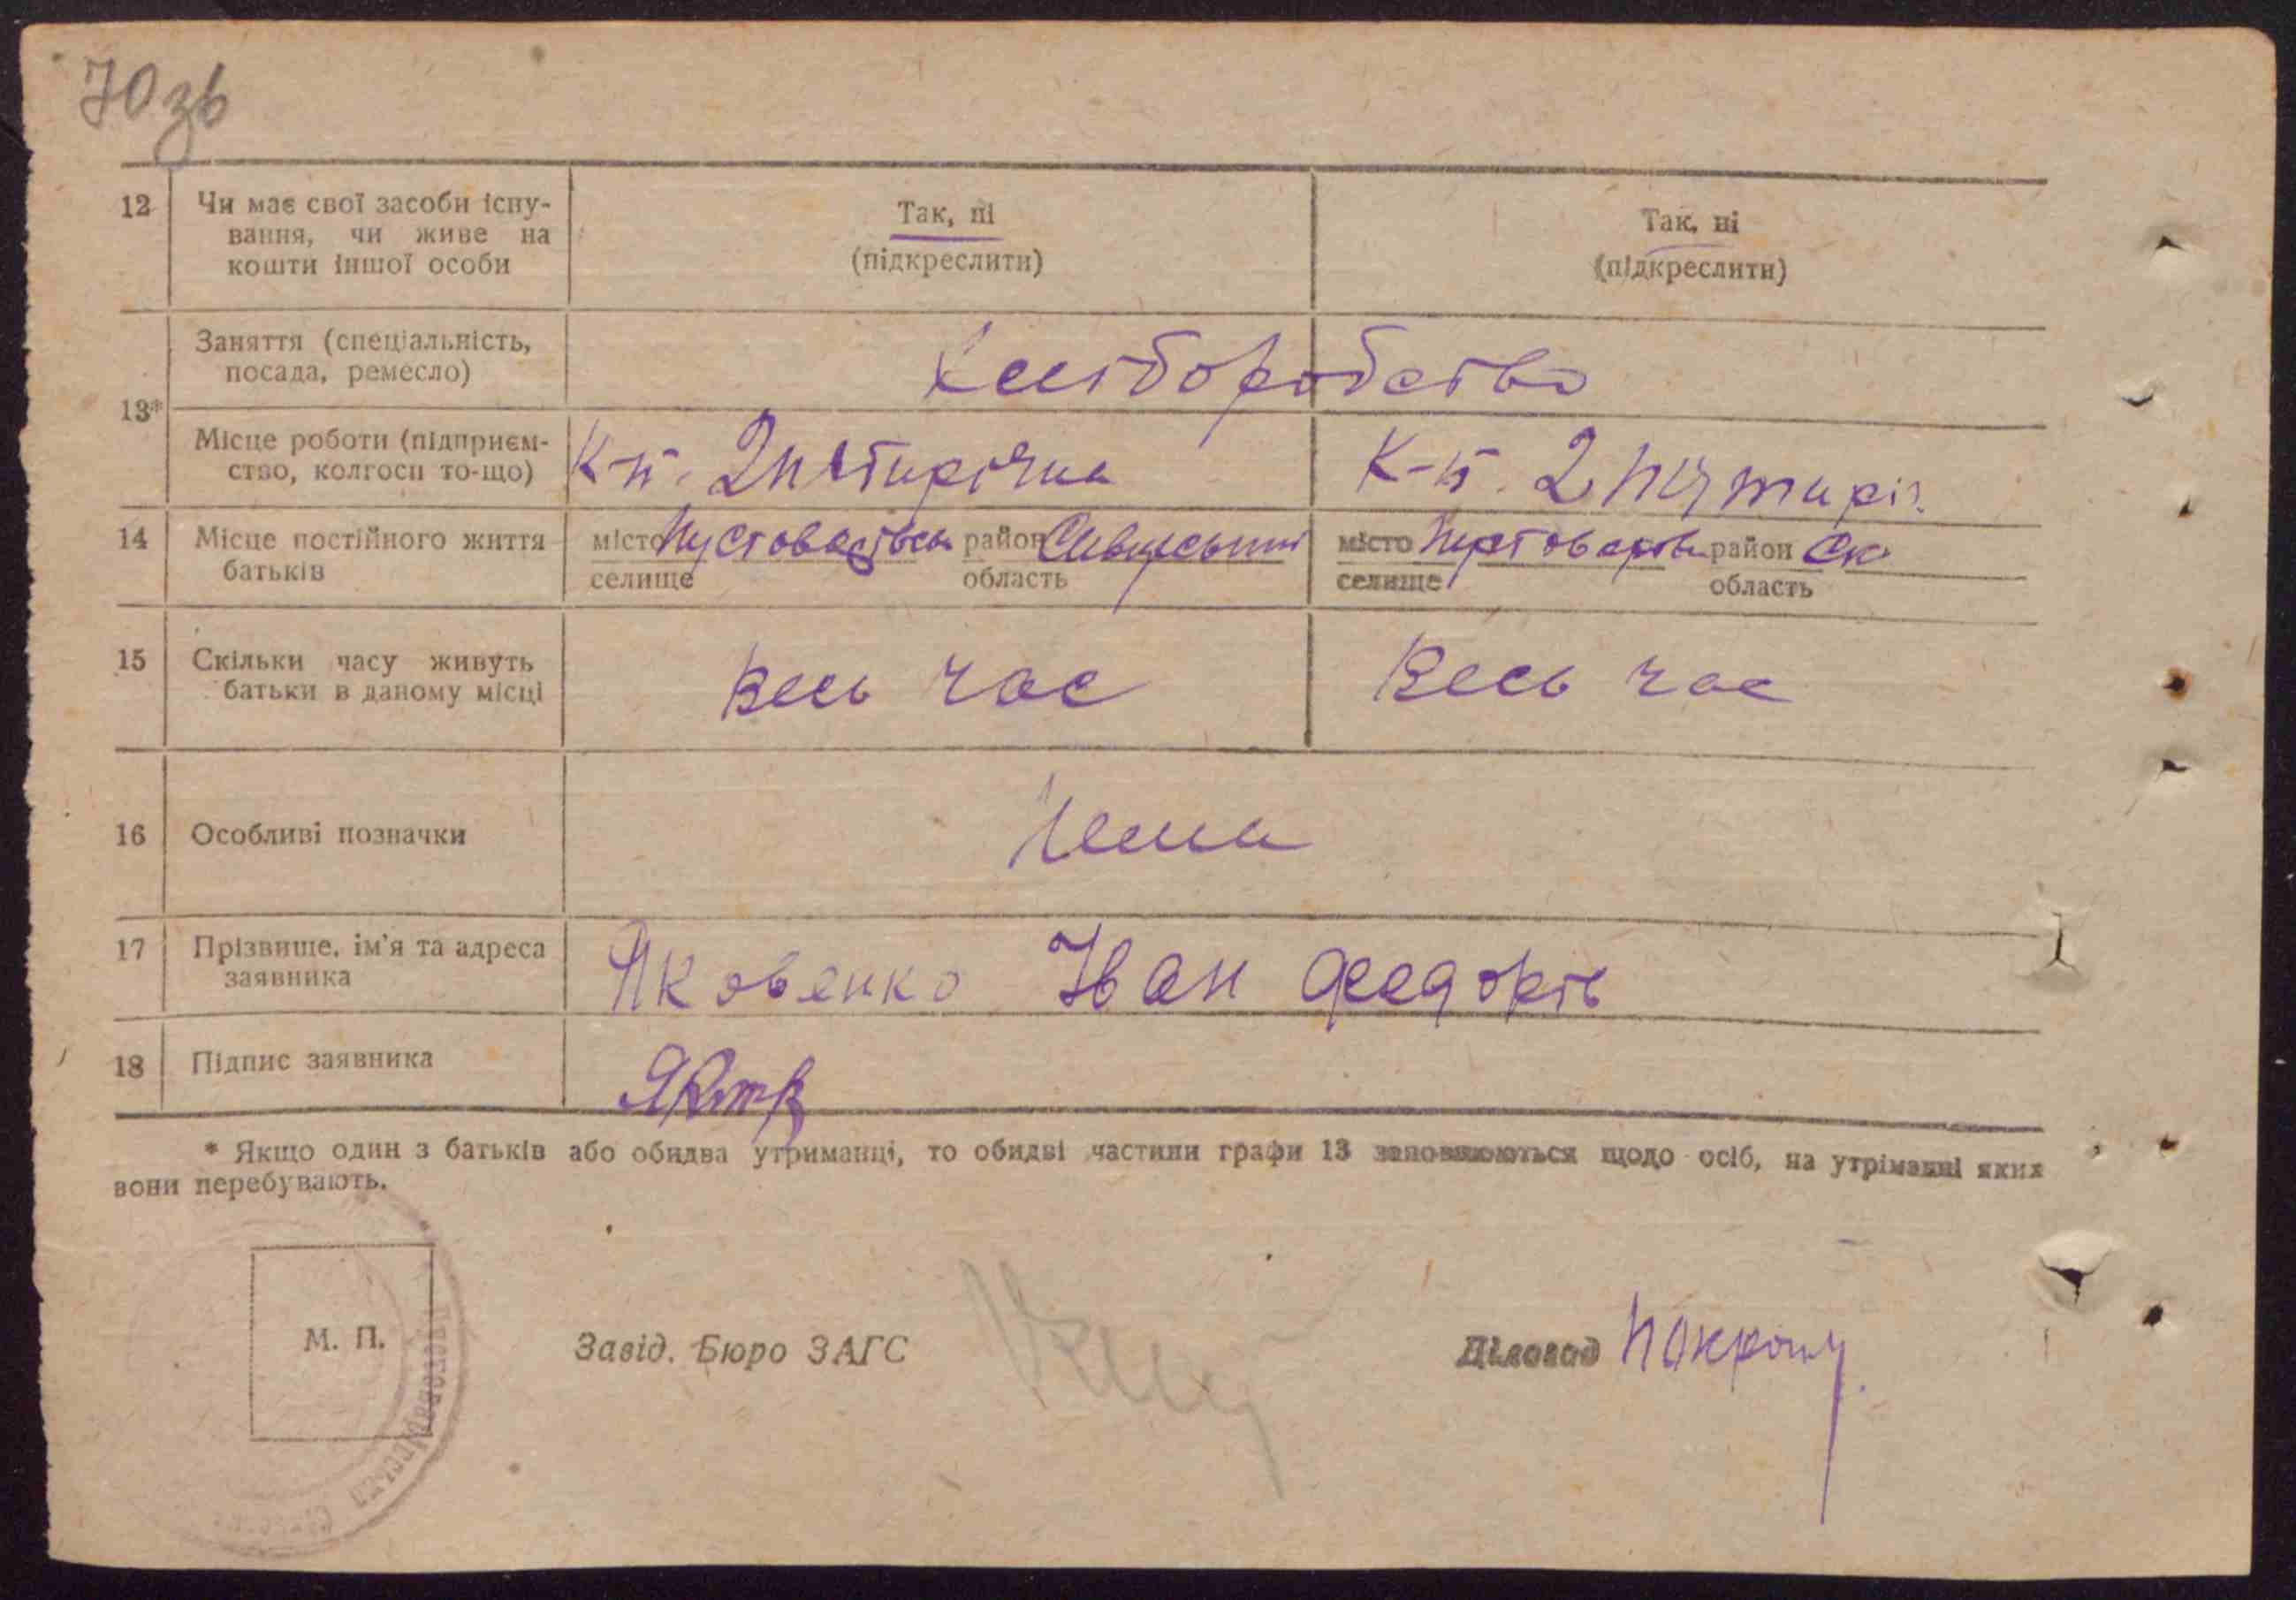 70 зв
12 Чи має свої засоби існу-
вання, чи живе на
кошти іншої особи
Так, ні
(підкреслити)
Так, ні
(підкреслити)
13*
Заняття (спеціальність,
посада, ремесло)
Хліборобство
Місце роботи (підприєм-
ство, колгосп то-що)
К-п. 2 пятирічка
К-п. 2 пятиріч.
14 Місце постійного життя
батьків
місто Пустоварівка район Сквирський
селище область
місто Пустоварівка район Ск
селище область
15 Скільки часу живуть
батьки в даному місці
Весь час
Весь час
16 Особливі позначки
Нема
17 Прізвище, ім'я та адреса
заявника
Яковенко Іван Федорів
18 Підпис заявника
* Якщо один з батьків або обидва утриманці, то обидві частини графи 13 заповнюються щодо осіб, на утріманні яких
вони перебувають.
М. П.
Завід. Бюро ЗАГС
Діловод